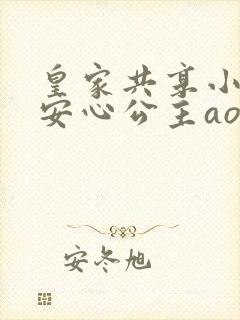 皇家共享小
安心公主ao
安冬旭